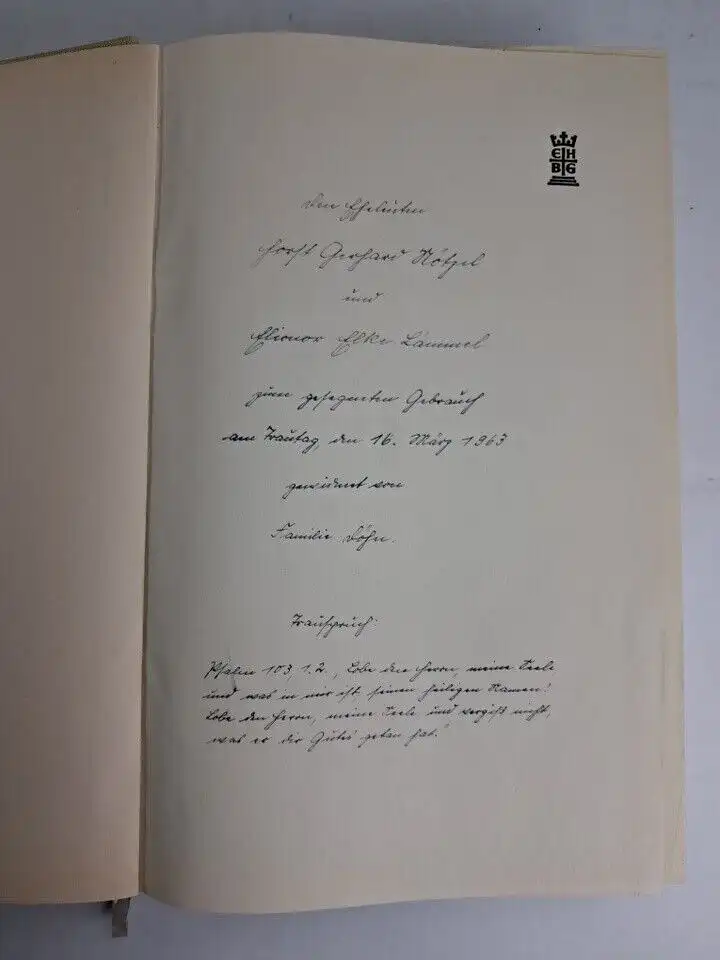 EH
BG
Den Eheleuten
Horst Gerhard Nötzel
und
Elionor Elke Lämmel
zum gesegneten Gebrauch
am Trautag, den 16. März 1963
gewidmet von
Familie Döhn.
Trauspruch:
Psalm 103, 1.2. „Lobe den Herrn, meine Seele,
und was in mir ist, seinen heiligen Namen!
Lobe den Herrn, meine Seele und vergiß nicht,
was er dir Gutes getan hat.“